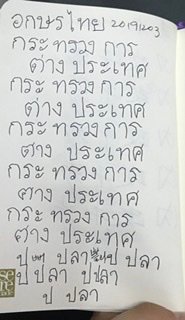 อกษรไทย 20191203
กระ ทรวง การ
ต่าง ประเทศ
กระ ทรวง การ
ต่าง ประเทศ
กระ ทรวง การ
ตาง ประเทศ
กระ ทรวง การ
ตาง ประเทศ
กระ ทรวง การ
ต่าง ประเทศ
ป ปลา ป ปลา
ป ปลา ป ปลา
ป ปลา